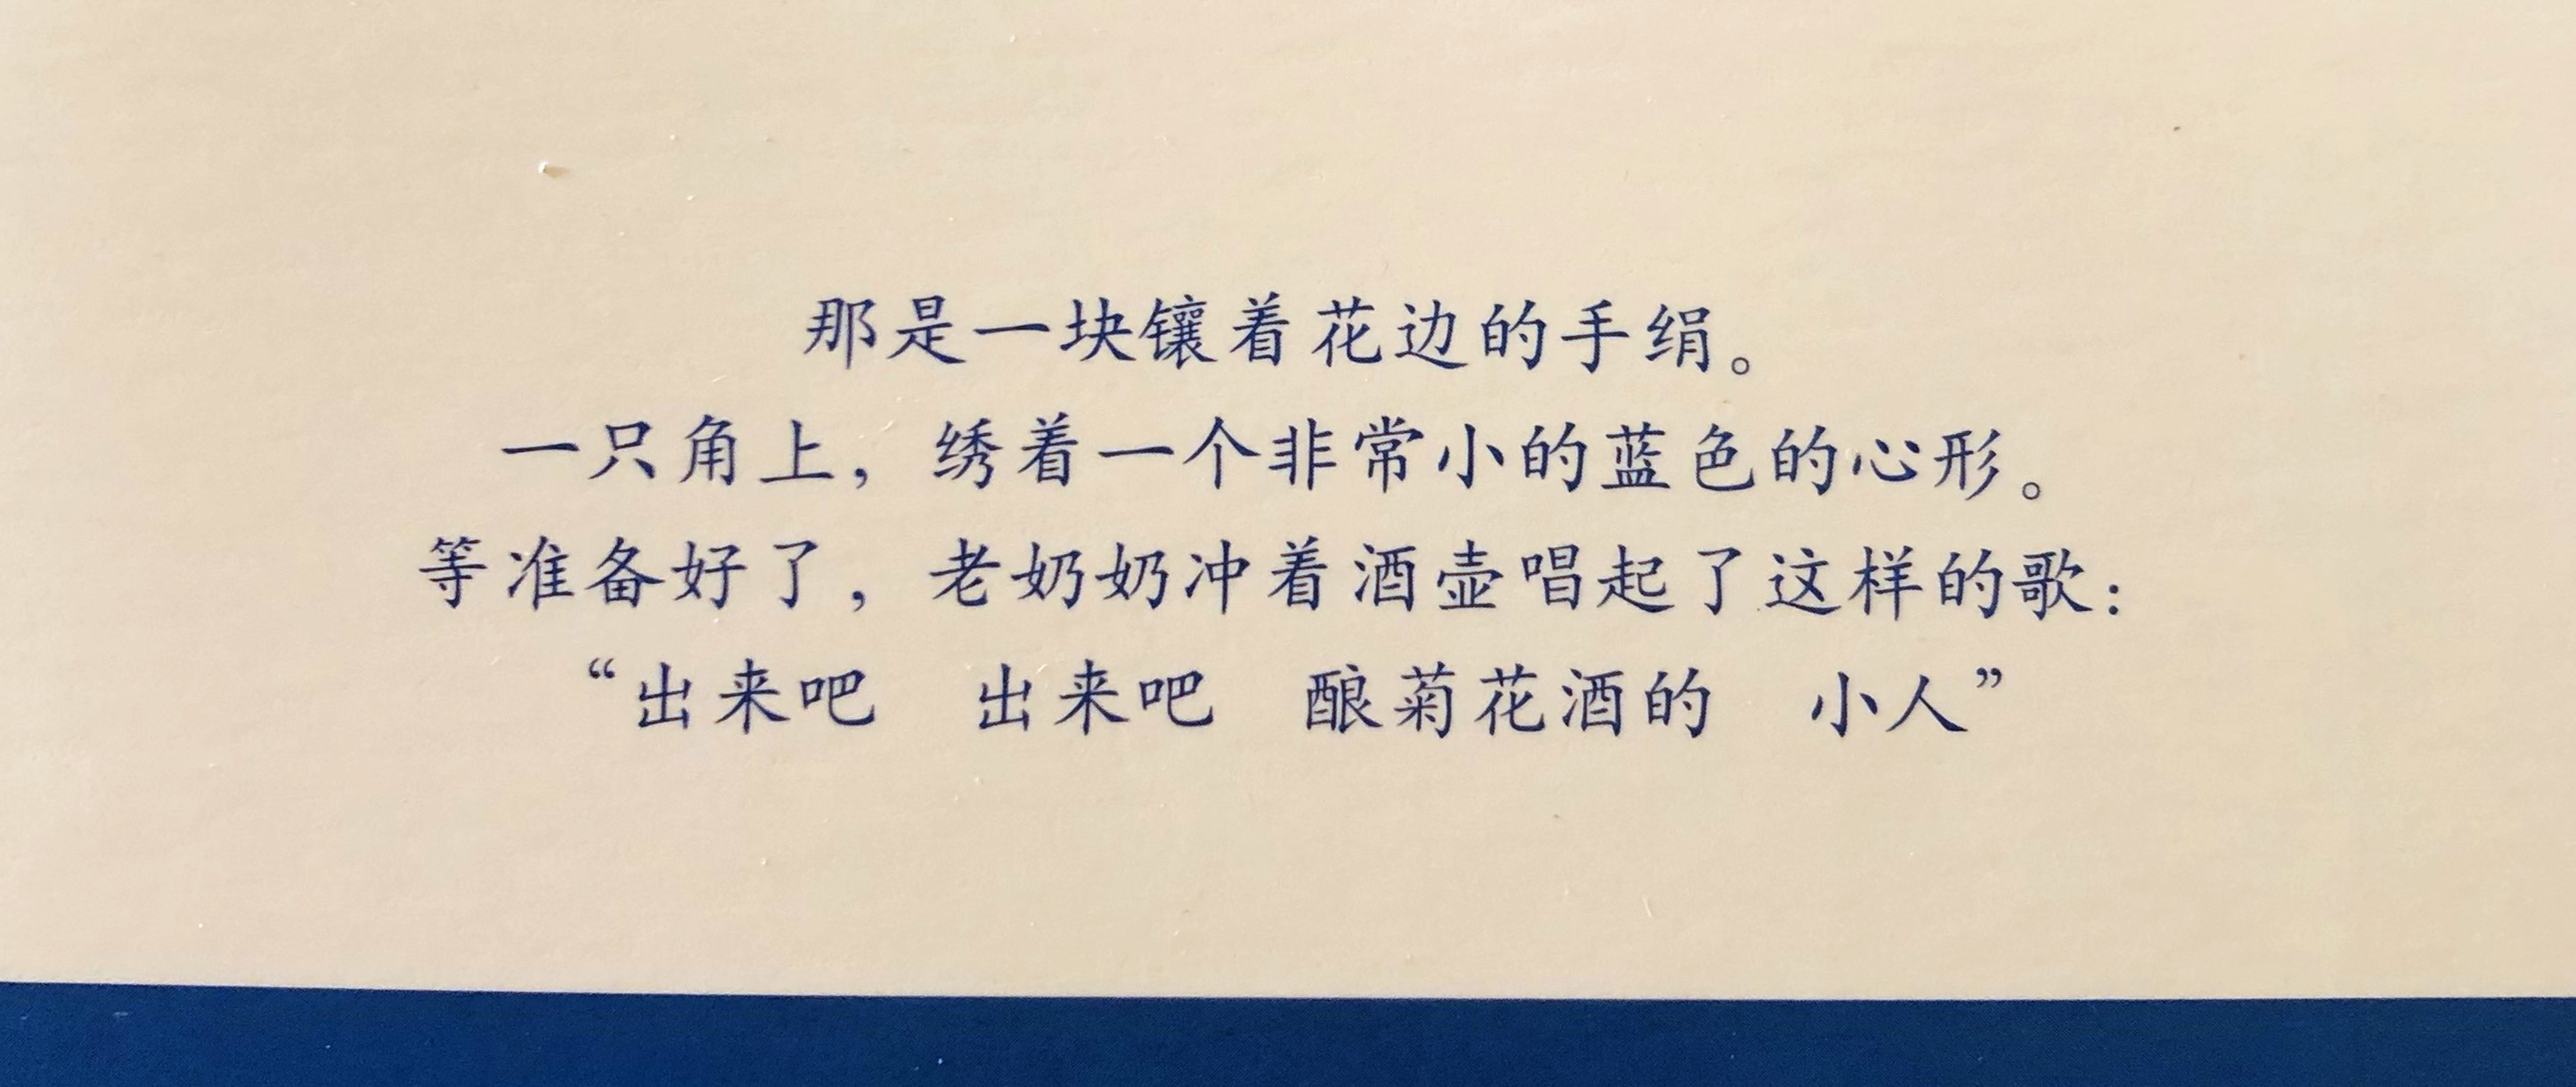 那是一块镶着花边的手绢。
一只角上，绣着一个非常小的蓝色的心形。
等准备好了，老奶奶冲着酒壶唱起了这样的歌：
“出来吧　出来吧　酿菊花酒的　小人”